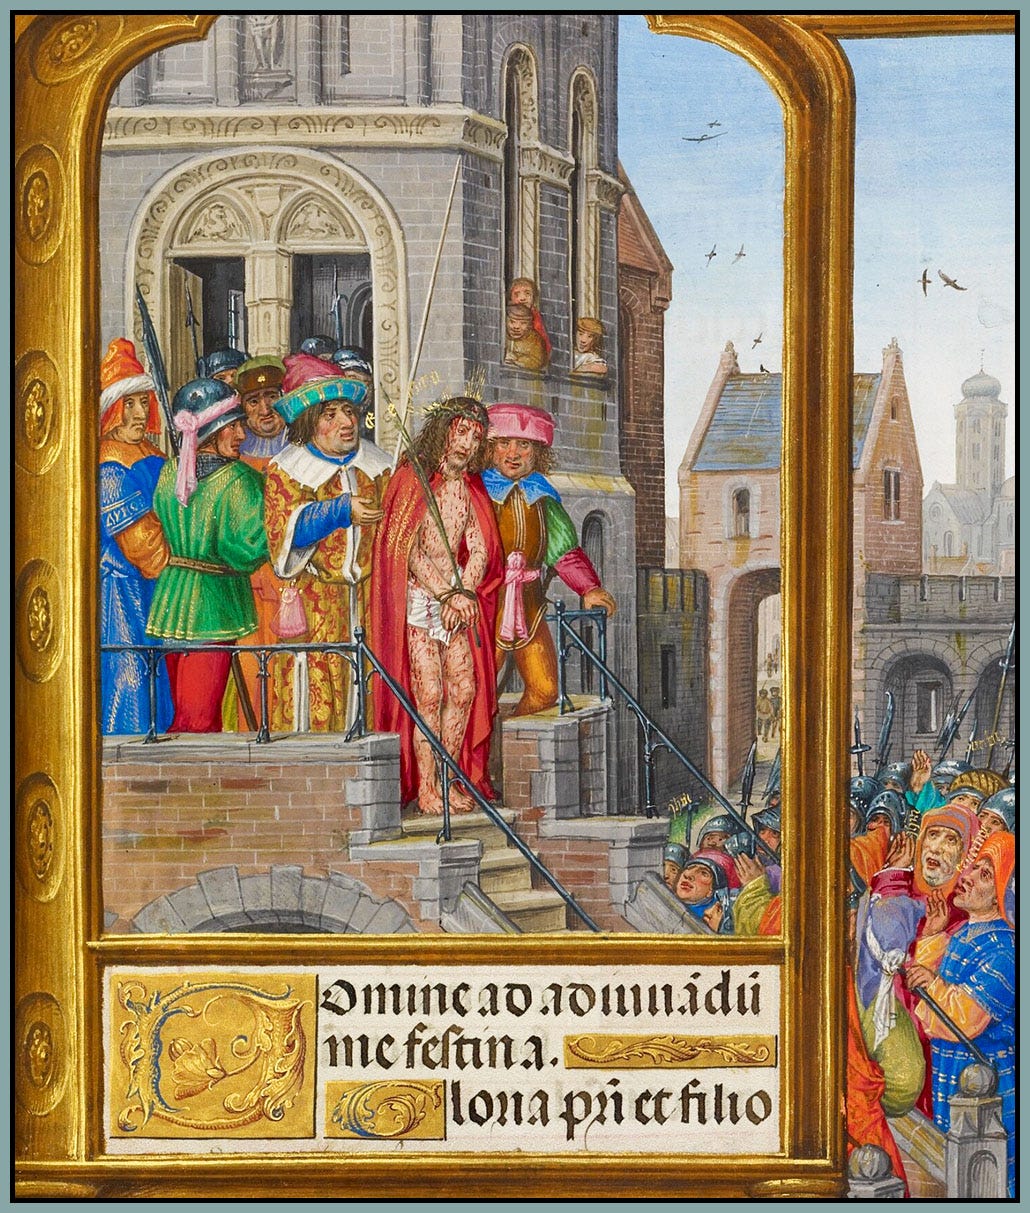 Domine ad adiuuādū
me festina.
Gloria pr̄i et filio